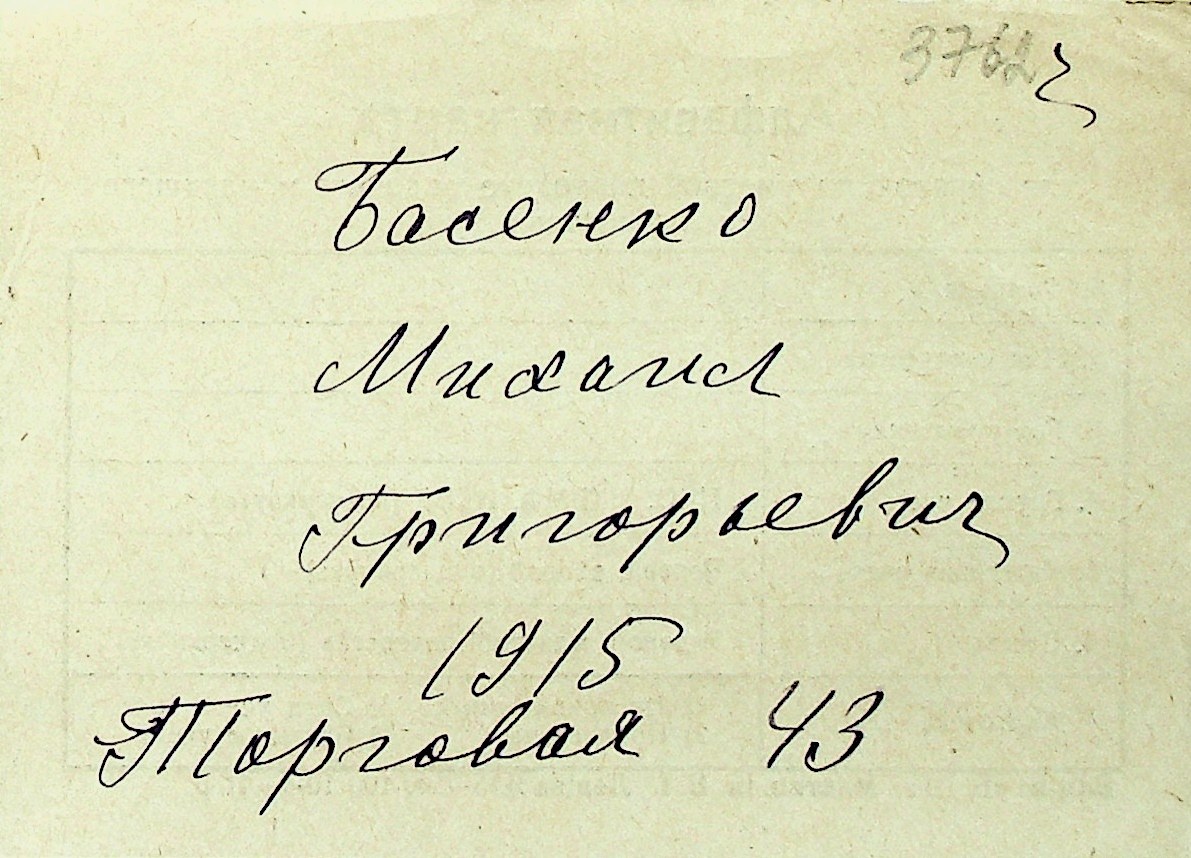 3762
Басенко
Михаил
Григорьевич
1915
Торговая 43